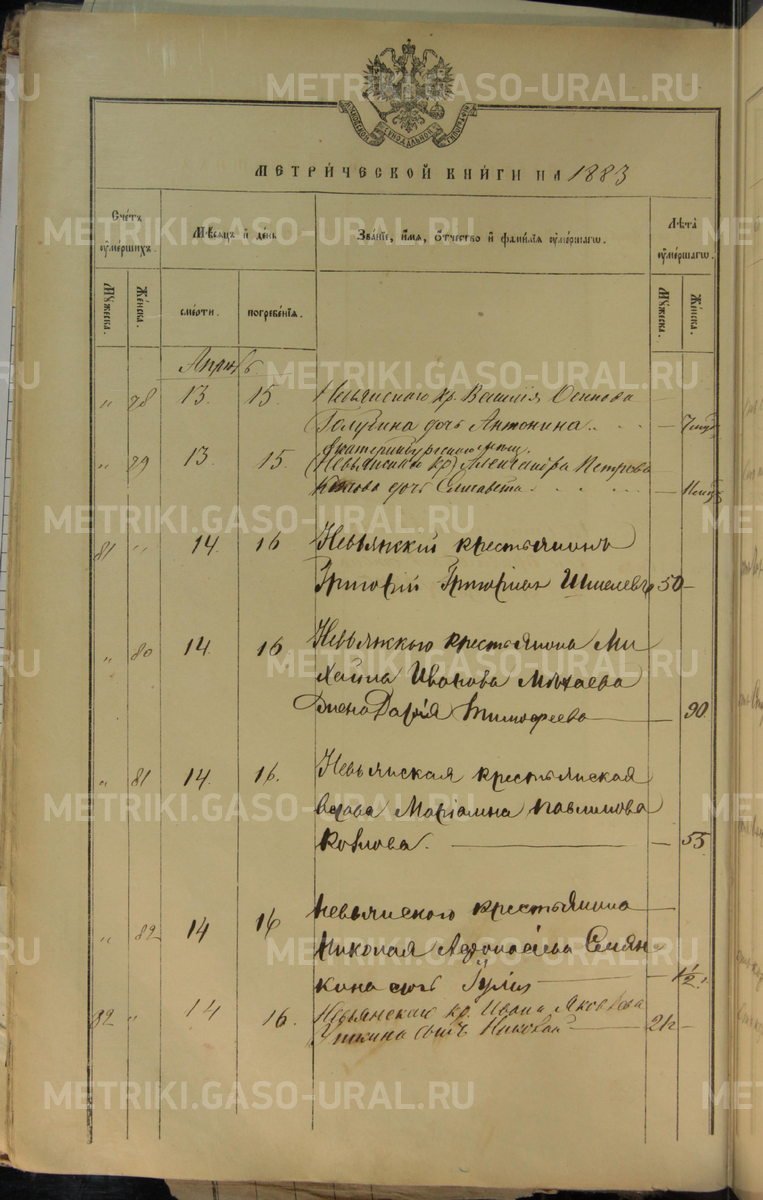 МОСКОВСКОЙ СѴНОДАЛЬНОЙ ТИПОГРАФІИ
МЕТРИ́ЧЕСКОЙ КНИ́ГИ НА 1883
Сче́тъ ᲂу҆ме́ршихъ.
Мѣ́сяцъ и҆ де́нь
Зва́ніе, и҆́мя, ѻ҆́тчество и҆ фами́лія ᲂу҆ме́ршаго.
Лѣ́та ᲂу҆ме́ршаго.
Мꙋ́жеска.
Же́нска.
сме́рти.
погребе́нія.
Мꙋ́жеска.
Же́нска.
Апрѣль
" 78 13. 15. Невьянскаго кр. Василія Осипова
Голубина дочь Антонина
" 79 13. 15. Екатеринбургскаго мѣщ.
(Невьянскаго кр.) Александра Петрова
дочь Елисавета
81 " 14. 16 Невьянскій крестьянинъ
Григорій Григорьев Шмелевъ 50 —
" 80 14. 16 Невьянскаго крестьянина Ми
хаила Иванова
жена Дарія Тимофеева — 90
" 81 14. 16. Невьянская крестьянская
вдова Маріамна Павлинова
Козлова. — 55
" 82 14 16 Невьянского крестьянина
Николая Афонасіева Семян-
кина — 1½
82 " 14 16. Невьянскаго кр. Ивана Яковлева
Уткина сынъ Николай —
METRIKI.GASO-URAL.RU